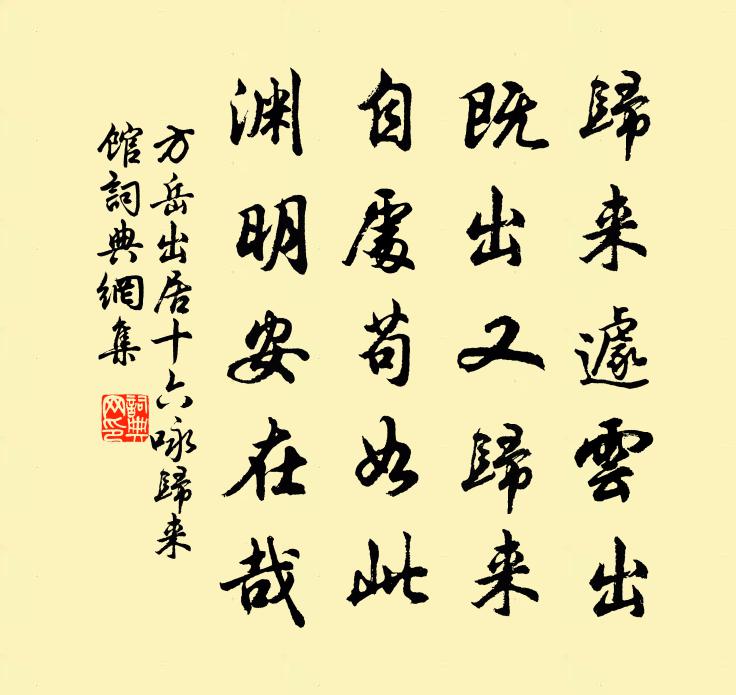 歸来遽雲出
既出又歸来
自處苟如此
渊明安在哉
方岳出居十六咏歸来
館詞典網集
詞典网印